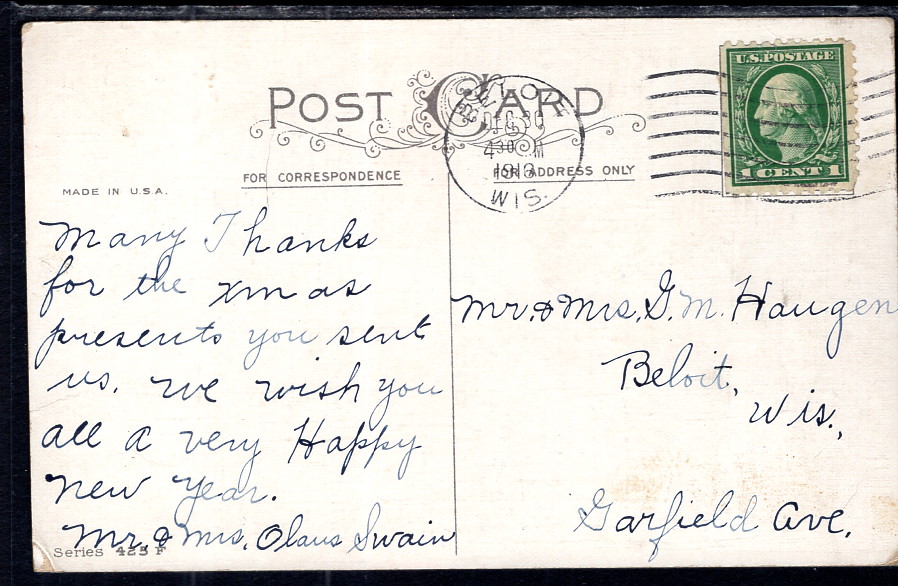 POST CARD
U.S. POSTAGE
1 CENT 1
DEC 30
4 30 M
WIS.
FOR CORRESPONDENCE
FOR ADDRESS ONLY
MADE IN U.S.A.
Many Thanks
for the xmas
presents you sent
us. we wish you
all a very Happy
New Year.
Mr. & Mrs. Olaus Swain
Series 425 F
Mr. & Mrs. G. M. Haugen
Beloit,
Wis.,
Garfield Ave.